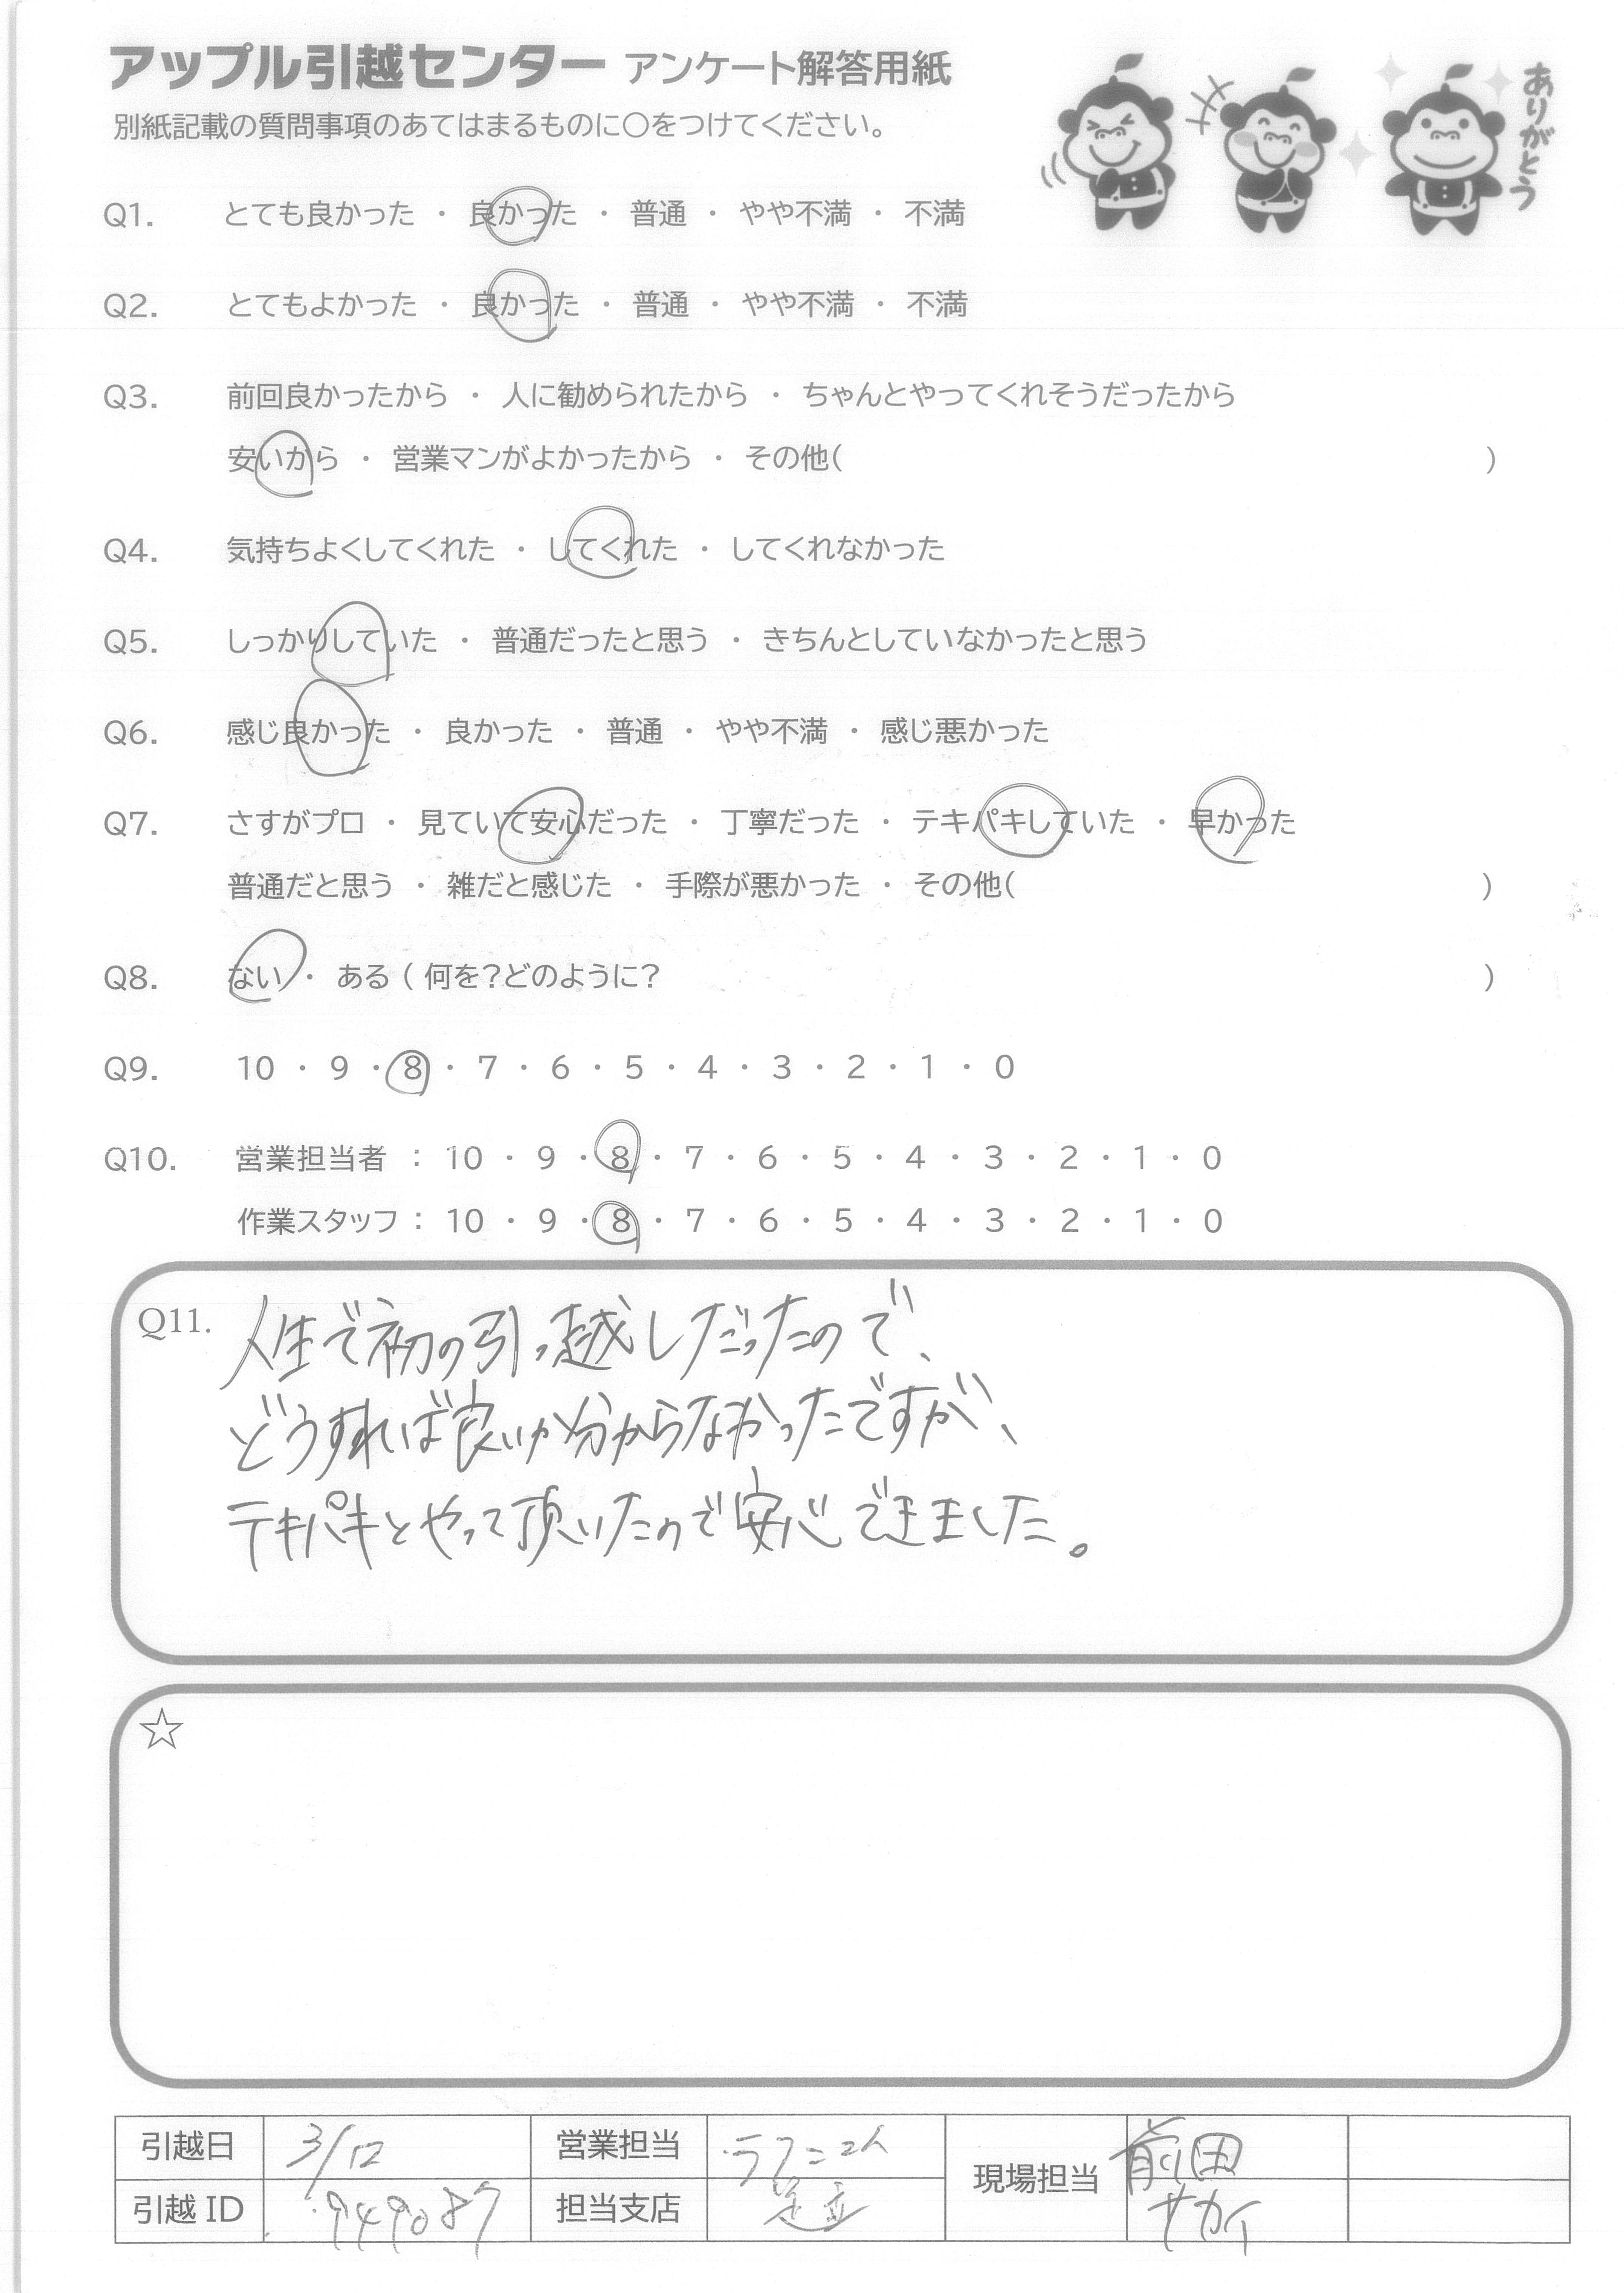 アップル引越センター アンケート解答用紙
別紙記載の質問事項のあてはまるものに○をつけてください。
ありがとう
Q1. とても良かった ・ 良かった ・ 普通 ・ やや不満 ・ 不満
Q2. とてもよかった ・ 良かった ・ 普通 ・ やや不満 ・ 不満
Q3. 前回良かったから ・ 人に勧められたから ・ ちゃんとやってくれそうだったから
安いから ・ 営業マンがよかったから ・ その他( )
Q4. 気持ちよくしてくれた ・ してくれた ・ してくれなかった
Q5. しっかりしていた ・ 普通だったと思う ・ きちんとしていなかったと思う
Q6. 感じ良かった ・ 良かった ・ 普通 ・ やや不満 ・ 感じ悪かった
Q7. さすがプロ ・ 見ていて安心だった ・ 丁寧だった ・ テキパキしていた ・ 早かった
普通だと思う ・ 雑だと感じた ・ 手際が悪かった ・ その他( )
Q8. ない ・ ある ( 何を?どのように? )
Q9. 10 ・ 9 ・ 8 ・ 7 ・ 6 ・ 5 ・ 4 ・ 3 ・ 2 ・ 1 ・ 0
Q10. 営業担当者 : 10 ・ 9 ・ 8 ・ 7 ・ 6 ・ 5 ・ 4 ・ 3 ・ 2 ・ 1 ・ 0
作業スタッフ : 10 ・ 9 ・ 8 ・ 7 ・ 6 ・ 5 ・ 4 ・ 3 ・ 2 ・ 1 ・ 0
Q11. 人生で初の引っ越しだったので、
どうすれば良いか分からなかったですが、
テキパキとやって頂いたので安心できました。
☆
引越日 3/12 営業担当 現場担当 前田
引越 ID 949087 担当支店 足立 サカイ